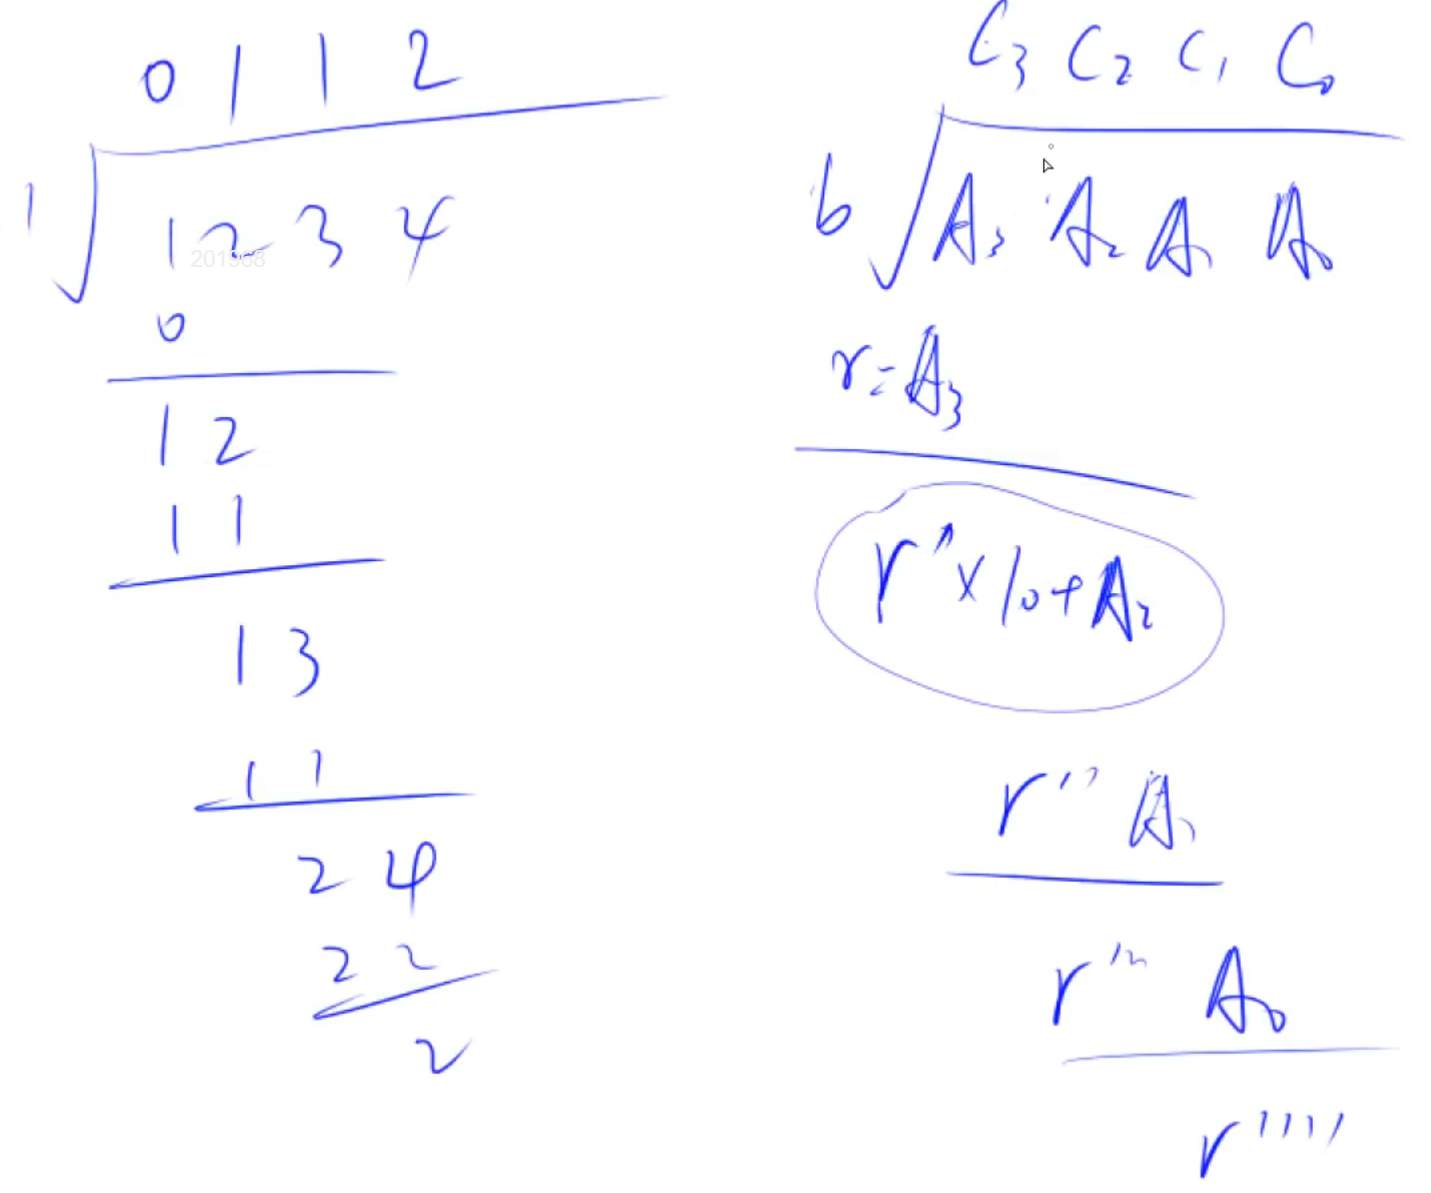 0 1 1 2
1 1 2 3 4
201968
0
1 2
1 1
1 3
1 1
2 4
2 2
2
C3 C2 C1 C0
b A3 A2 A1 A0
r=A3
r'×10+A2
r'' A1
r''' A0
r''''